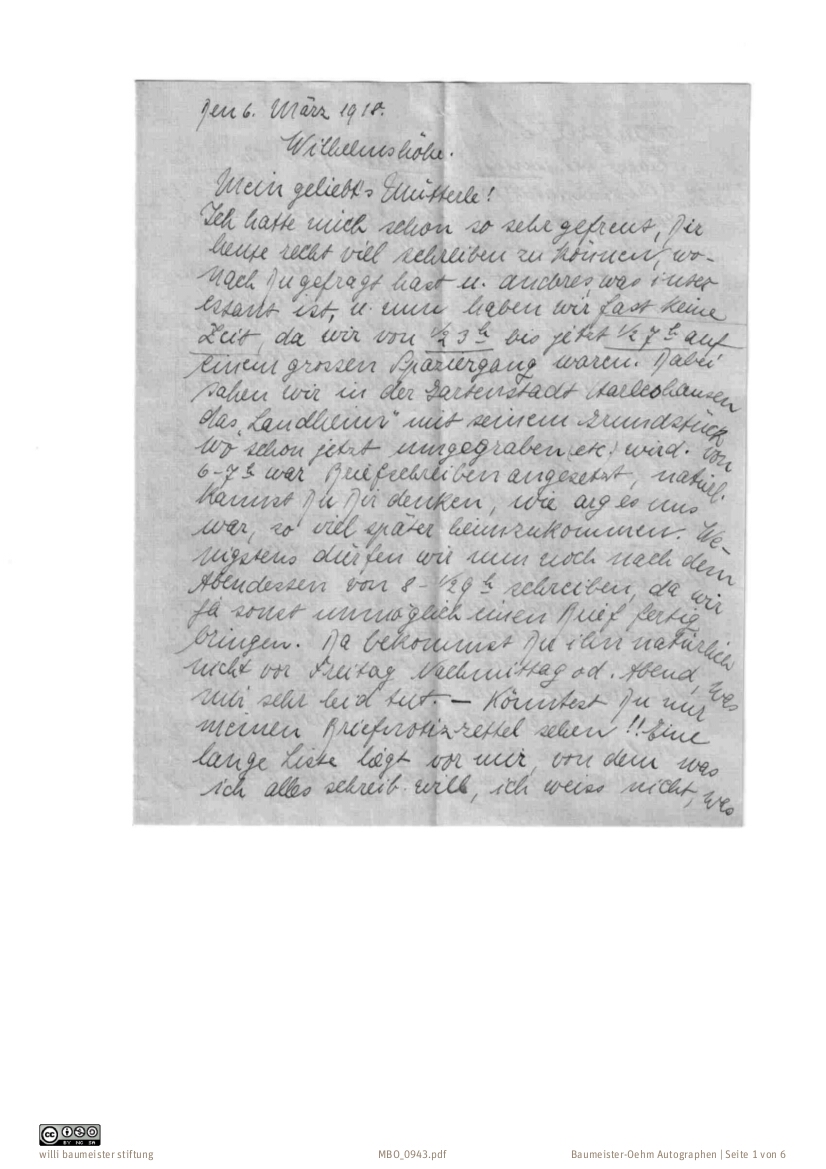 Den 6. März 1918.
Wilhelmshöhe.
Mein geliebt's Mütterle!
Ich hatte mich schon so sehr gefreut, Dir
heute recht viel schreiben zu können, wo-
nach Du gefragt hast u. andres was inter
essant ist, u. nun haben wir fast keine
Zeit, da wir von ½ 3 h bis jetzt ½ 7 h auf
einem grossen Spaziergang waren. Dabei
sahen wir in der Gartenstadt Harleshausen
das „Landheim" mit seinem Grundstück
wo schon jetzt umgegraben (etc.) wird. Von
6-7 h war Briefschreiben angesetzt, natürl.
kannst Du Dir denken, wie arg es uns
war, so viel später heimzukommen. We-
nigstens dürfen wir nun noch nach dem
Abendessen von 8 - ½ 9 h schreiben, da wir
ja sonst unmöglich einen Brief fertig
bringen. Da bekommst Du ihn natürlich
nicht vor Freitag Nachmittag od. Abend, was
mir sehr leid tut. — Könntest Du nur
meinen Briefnotizzettel sehen!! Eine
lange Liste liegt vor mir, von dem was
ich alles schreib. will, ich weiss nicht, was
BY NC SA
willi baumeister stiftung
MBO_0943.pdf
Baumeister-Oehm Autographen | Seite 1 von 6